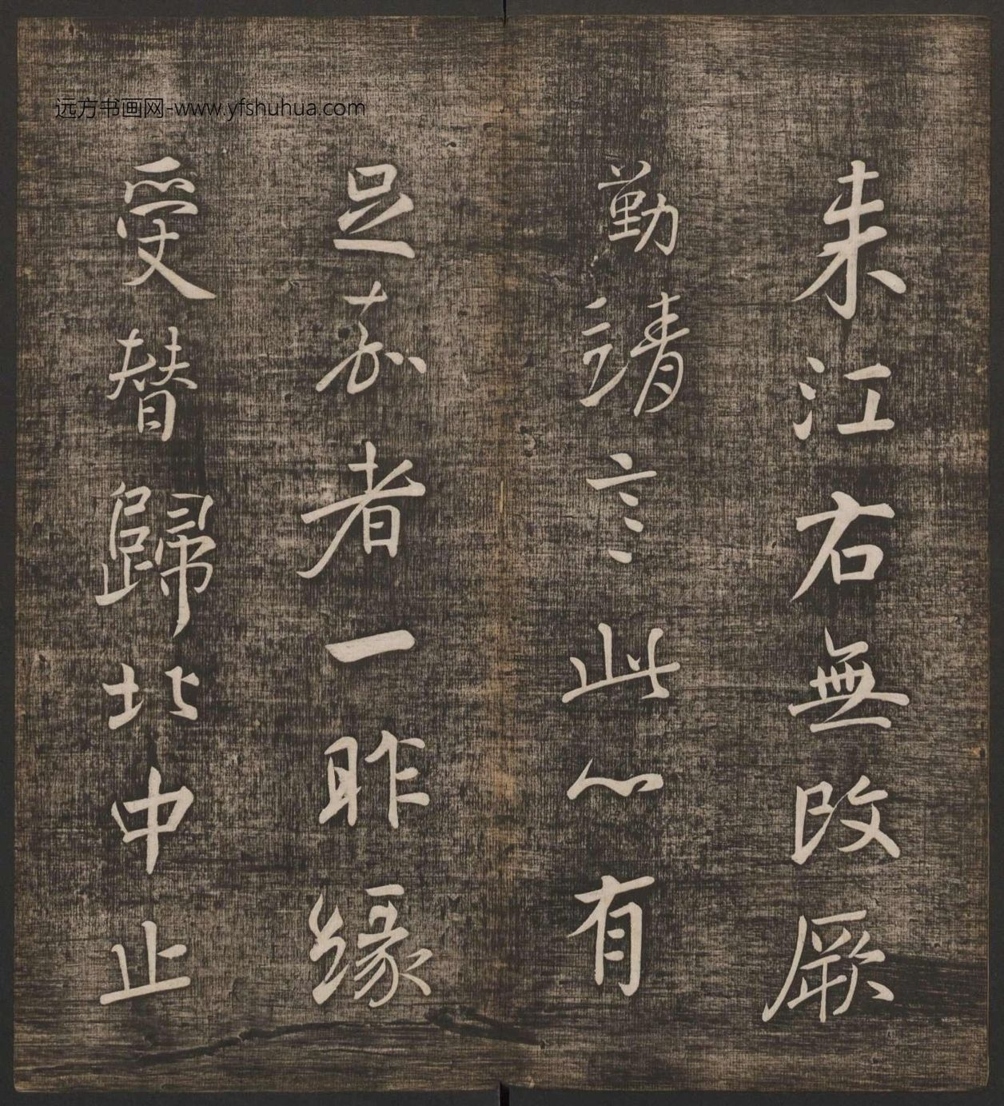 远方书画网-www.yfshuhua.com
来江右無改厥
勤請言此心有
足嘉者一昨緣
受替歸北中止